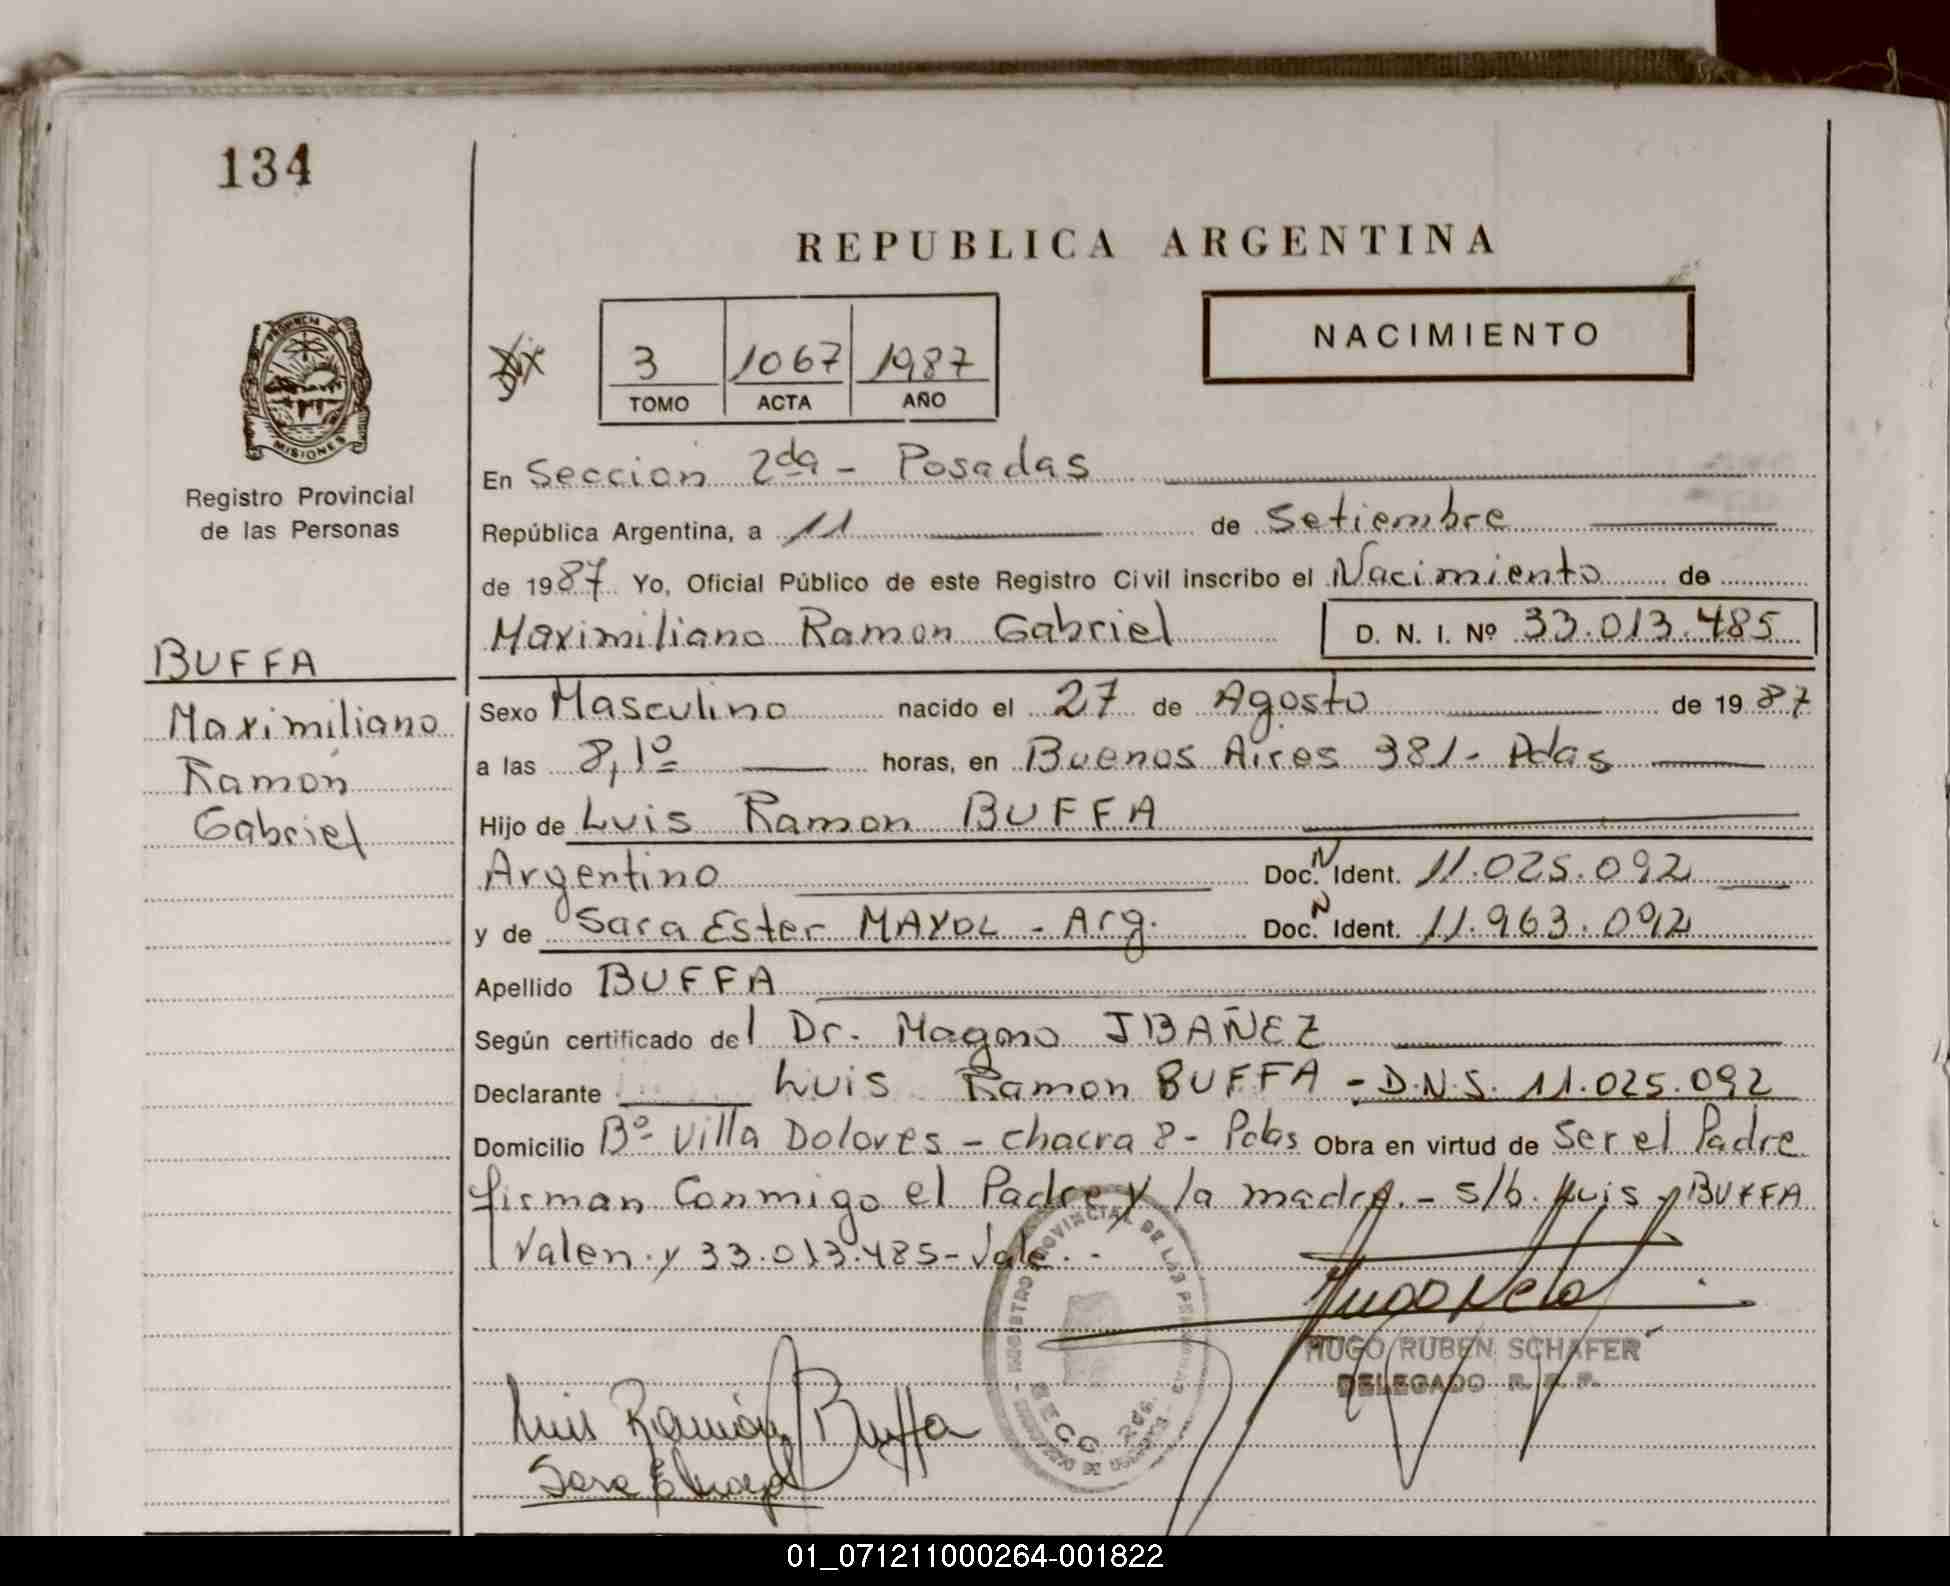 134
REPUBLICA ARGENTINA
NACIMIENTO
3 1067 1987
TOMO ACTA AÑO
PROVINCIA DE
MISIONES
Registro Provincial
de las Personas
En Seccion 2da - Posadas
República Argentina, a 11 de Setiembre
de 1987 Yo, Oficial Público de este Registro Civil inscribo el Nacimiento de
Maximiliano Ramon Gabriel D. N. I. Nº 33.013.485
BUFFA
Maximiliano
Ramon
Gabriel
Sexo Masculino nacido el 27 de Agosto de 1987
a las 8,1º horas, en Buenos Aires 381- Pdas
Hijo de Luis Ramon BUFFA
Argentino Doc. N Ident. 11.025.092
y de Sara Ester MAYOL - Arg. Doc. N Ident. 11.963.092
Apellido BUFFA
Según certificado del Dr. Magno IBAÑEZ
Declarante Luis Ramon BUFFA - D.N.I. 11.025.092
Domicilio Bº Villa Dolores - chacra 8 - Pdas Obra en virtud de Ser el Padre
firman Conmigo el Padre y la madre. - s/b. Luis y BUFFA
Valen y 33.013.485 - Vale. -
REGISTRO PROVINCIAL DE LAS
SECC. 2da.
HUGO RUBEN SCHAFER
DELEGADO R. P. P.
Luis Ramón Buffa
Sara E Mayol
01_071211000264-001822